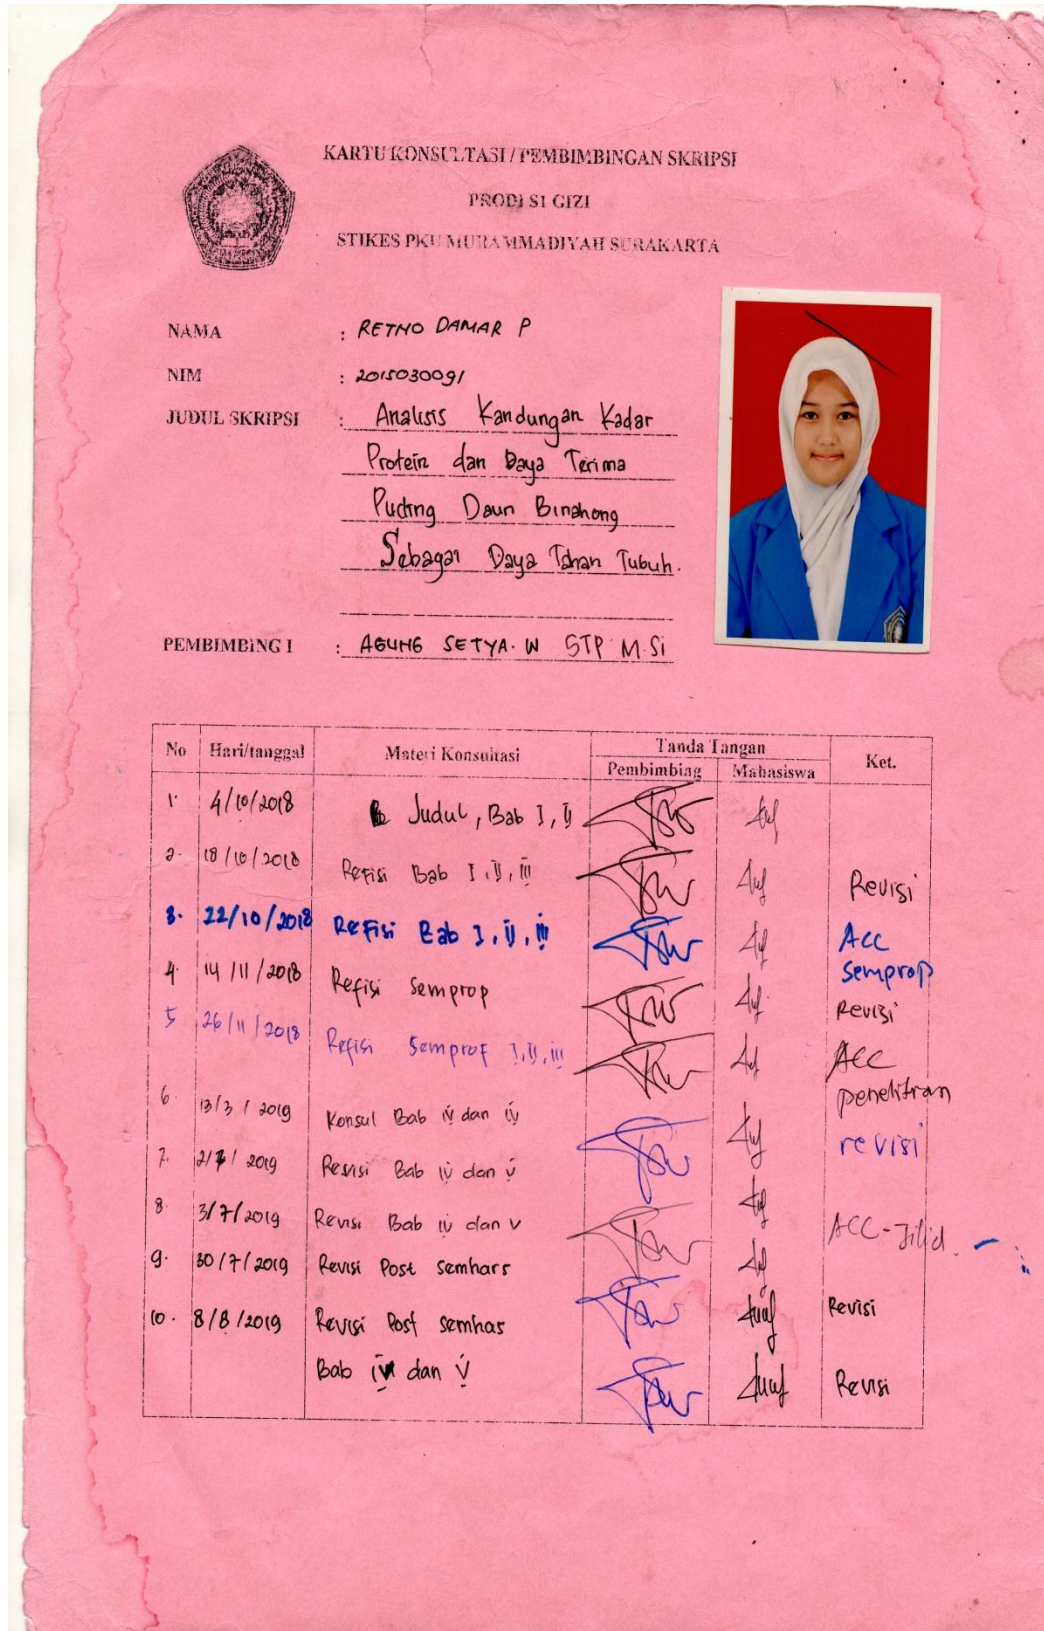 KARTU KONSULTASI / PEMBIMBINGAN SKRIPSI
PRODI S1 GIZI
STIKES PKU MUHAMMADIYAH SURAKARTA
NAMA : RETNO DAMAR P
NIM : 2015030091
JUDUL SKRIPSI : Analisis Kandungan Kadar
Protein dan Daya Terima
Puding Daun Binahong
Sebagai Daya Tahan Tubuh.
PEMBIMBING I : AGUNG SETYA. W STP M.Si
No Hari/tanggal Materi Konsultasi Tanda Tangan Ket.
Pembimbing Mahasiswa
1. 4/10/2018 Judul, Bab I, II
2. 18/10/2018 Refisi Bab I, II, III Revisi
3. 22/10/2018 Refisi Bab I, II, III ACC
semprop
4. 14/11/2018 Refisi semprop Revisi
5 26/11/2018 Refisi Semprof I, II, III ACC
penelitian
6. 13/3/2019 Konsul Bab IV dan IV revisi
7. 2/7/2019 Revisi Bab IV dan V
8. 3/7/2019 Revisi Bab IV dan V ACC-Jilid.
9. 30/7/2019 Revisi Post semhars
10. 8/8/2019 Revisi Post semhas Revisi
Bab IV dan V Revisi